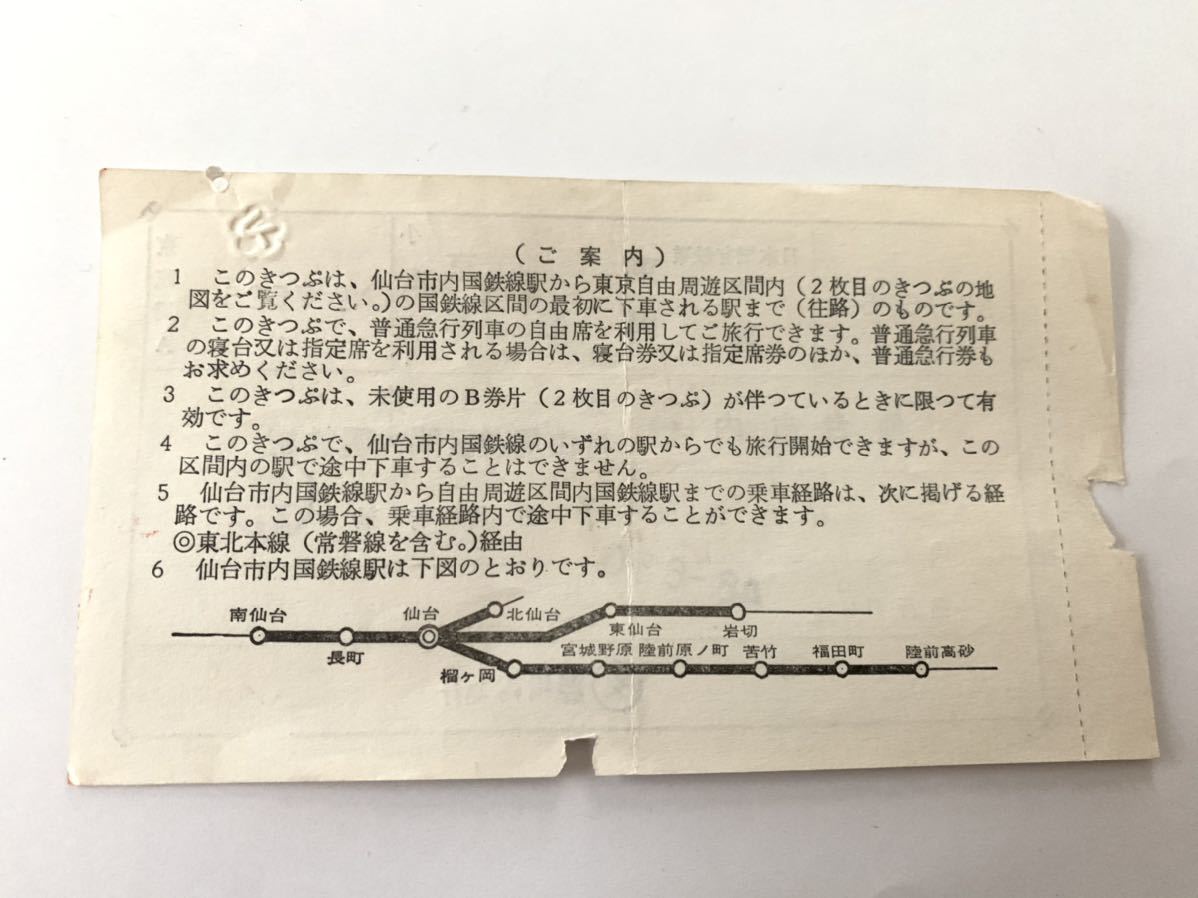 (ご案内)
1 このきつぷは、仙台市内国鉄線駅から東京自由周遊区間内(2枚目のきつぷの地
図をご覧ください。)の国鉄線区間の最初に下車される駅まで(往路)のものです。
2 このきつぷで、普通急行列車の自由席を利用してご旅行できます。普通急行列車
の寝台又は指定席を利用される場合は、寝台券又は指定席券のほか、普通急行券も
お求めください。
3 このきつぷは、未使用のB券片(2枚目のきつぷ)が伴つているときに限つて有
効です。
4 このきつぷで、仙台市内国鉄線のいずれの駅からでも旅行開始できますが、この
区間内の駅で途中下車することはできません。
5 仙台市内国鉄線駅から自由周遊区間内国鉄線駅までの乗車経路は、次に掲げる経
路です。この場合、乗車経路内で途中下車することができます。
◎東北本線(常磐線を含む。)経由
6 仙台市内国鉄線駅は下図のとおりです。
南仙台 仙台 北仙台 東仙台 岩切
長町 榴ヶ岡 宮城野原 陸前原ノ町 苦竹 福田町 陸前高砂